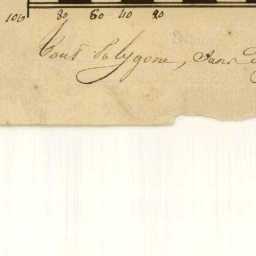 100 80 60 40 20
Tout Polygone, sans